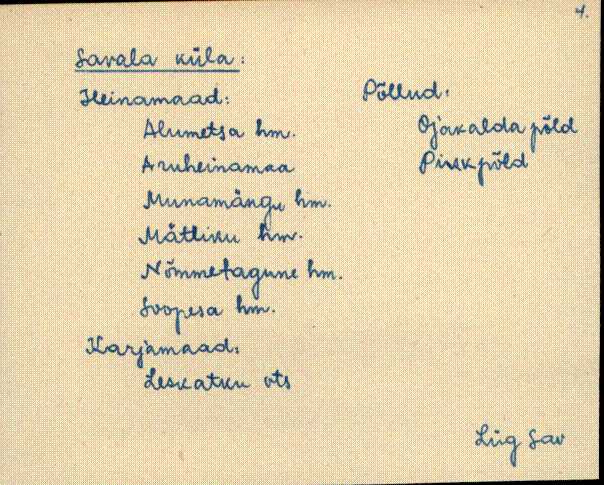 4.
Savala küla:
Heinamaad:
Alumetsa hm.
Aruheinamaa
Munamängu hm.
Mätliku hm.
Nõmmetagune hm.
Soopesa hm.
Karjamaad:
Leskatku ots
Põllud:
Ojakalda põld
Piirkpõld
Lüg Sav